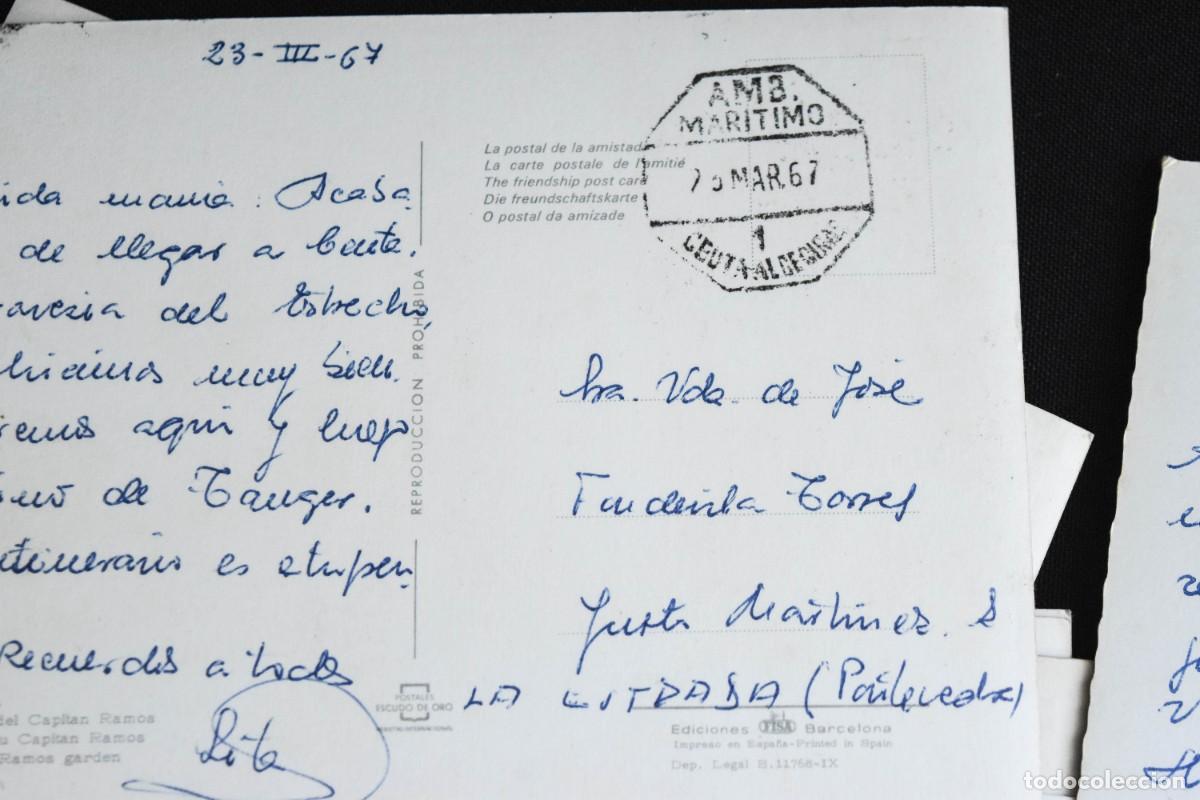 23-III-67
AMB.
MARITIMO
MAR.67
1
CEUTA-ALGECIRAS
La postal de la amistad
La carte postale de l'amitié
The friendship post card
Die freundschaftskarte
O postal da amizade
ida mamá. Acaba
de llegar a Ceuta.
avesia del Estrecho,
muy bien.
remos aquí y luego
de Tanger.
itinerario es estupen
Recuerdos a todos
Rita
REPRODUCCION PROHIBIDA
Sra. Vda. de José
Fondevila Torres
Justo Martinez. 8
LA ESTRADA (Pontevedra)
POSTALES
ESCUDO DE ORO
del Capitan Ramos
u Capitan Ramos
Ramos garden
Ediciones FISA Barcelona
Impreso en España-Printed in Spain
Dep. Legal B.11768-IX
todocoleccion